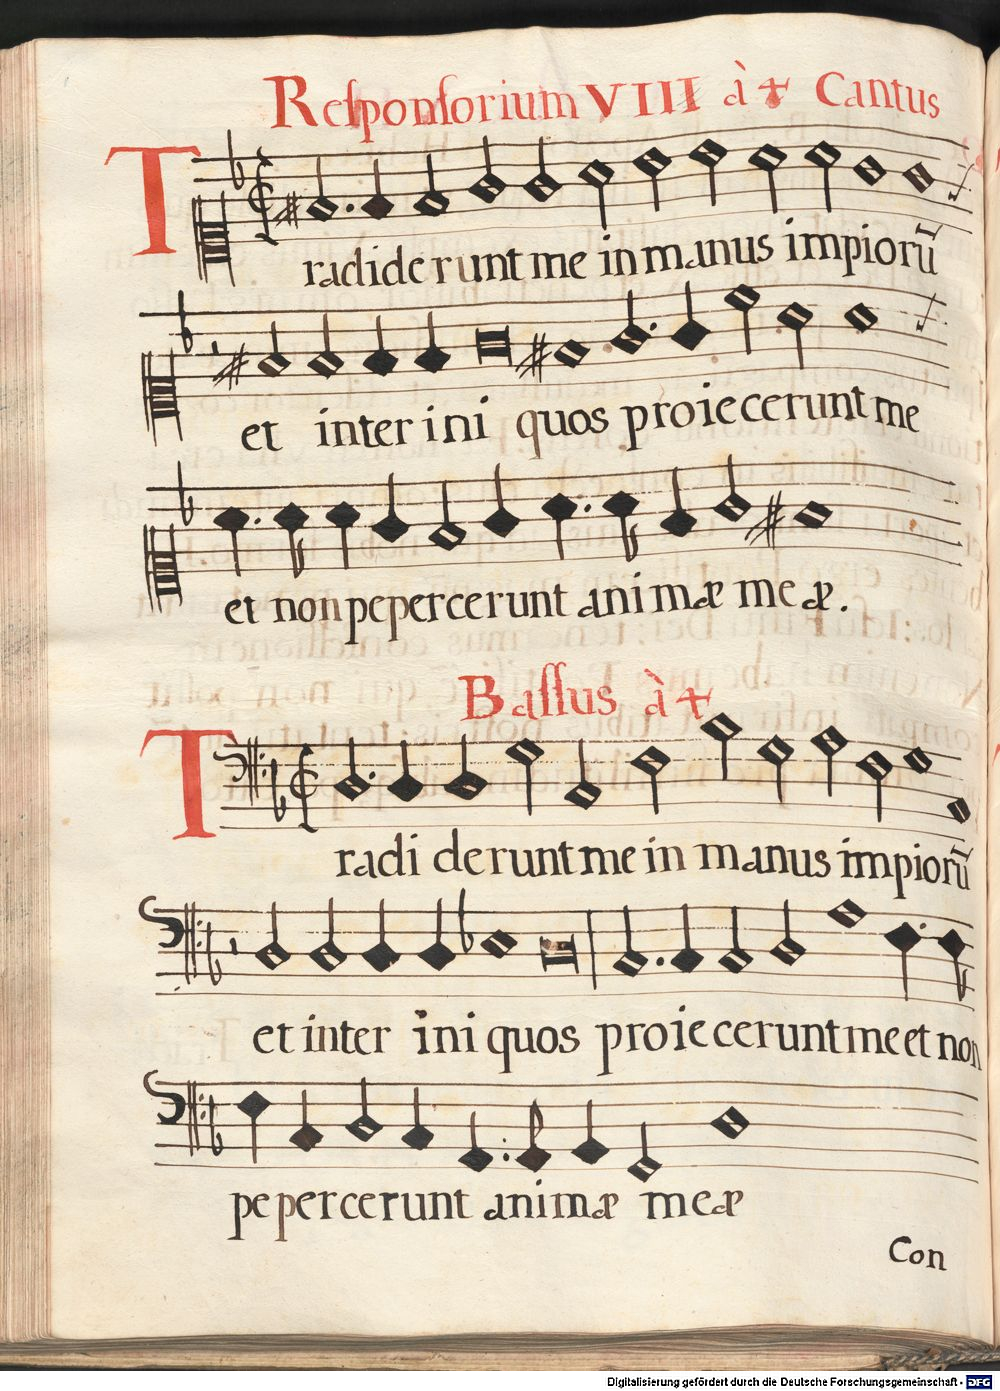 Reſponſorium VIII à 4 Cantus
Tradiderunt me in manus impiorū
et inter ini quos proiecerunt me
et non pepercerunt animæ meæ.
Baſſus à 4
Tradiderunt me in manus impiorū
et inter iniquos proiecerunt me et non
pepercerunt animæ meæ
Con
Digitalisierung gefördert durch die Deutsche Forschungsgemeinschaft - DFG